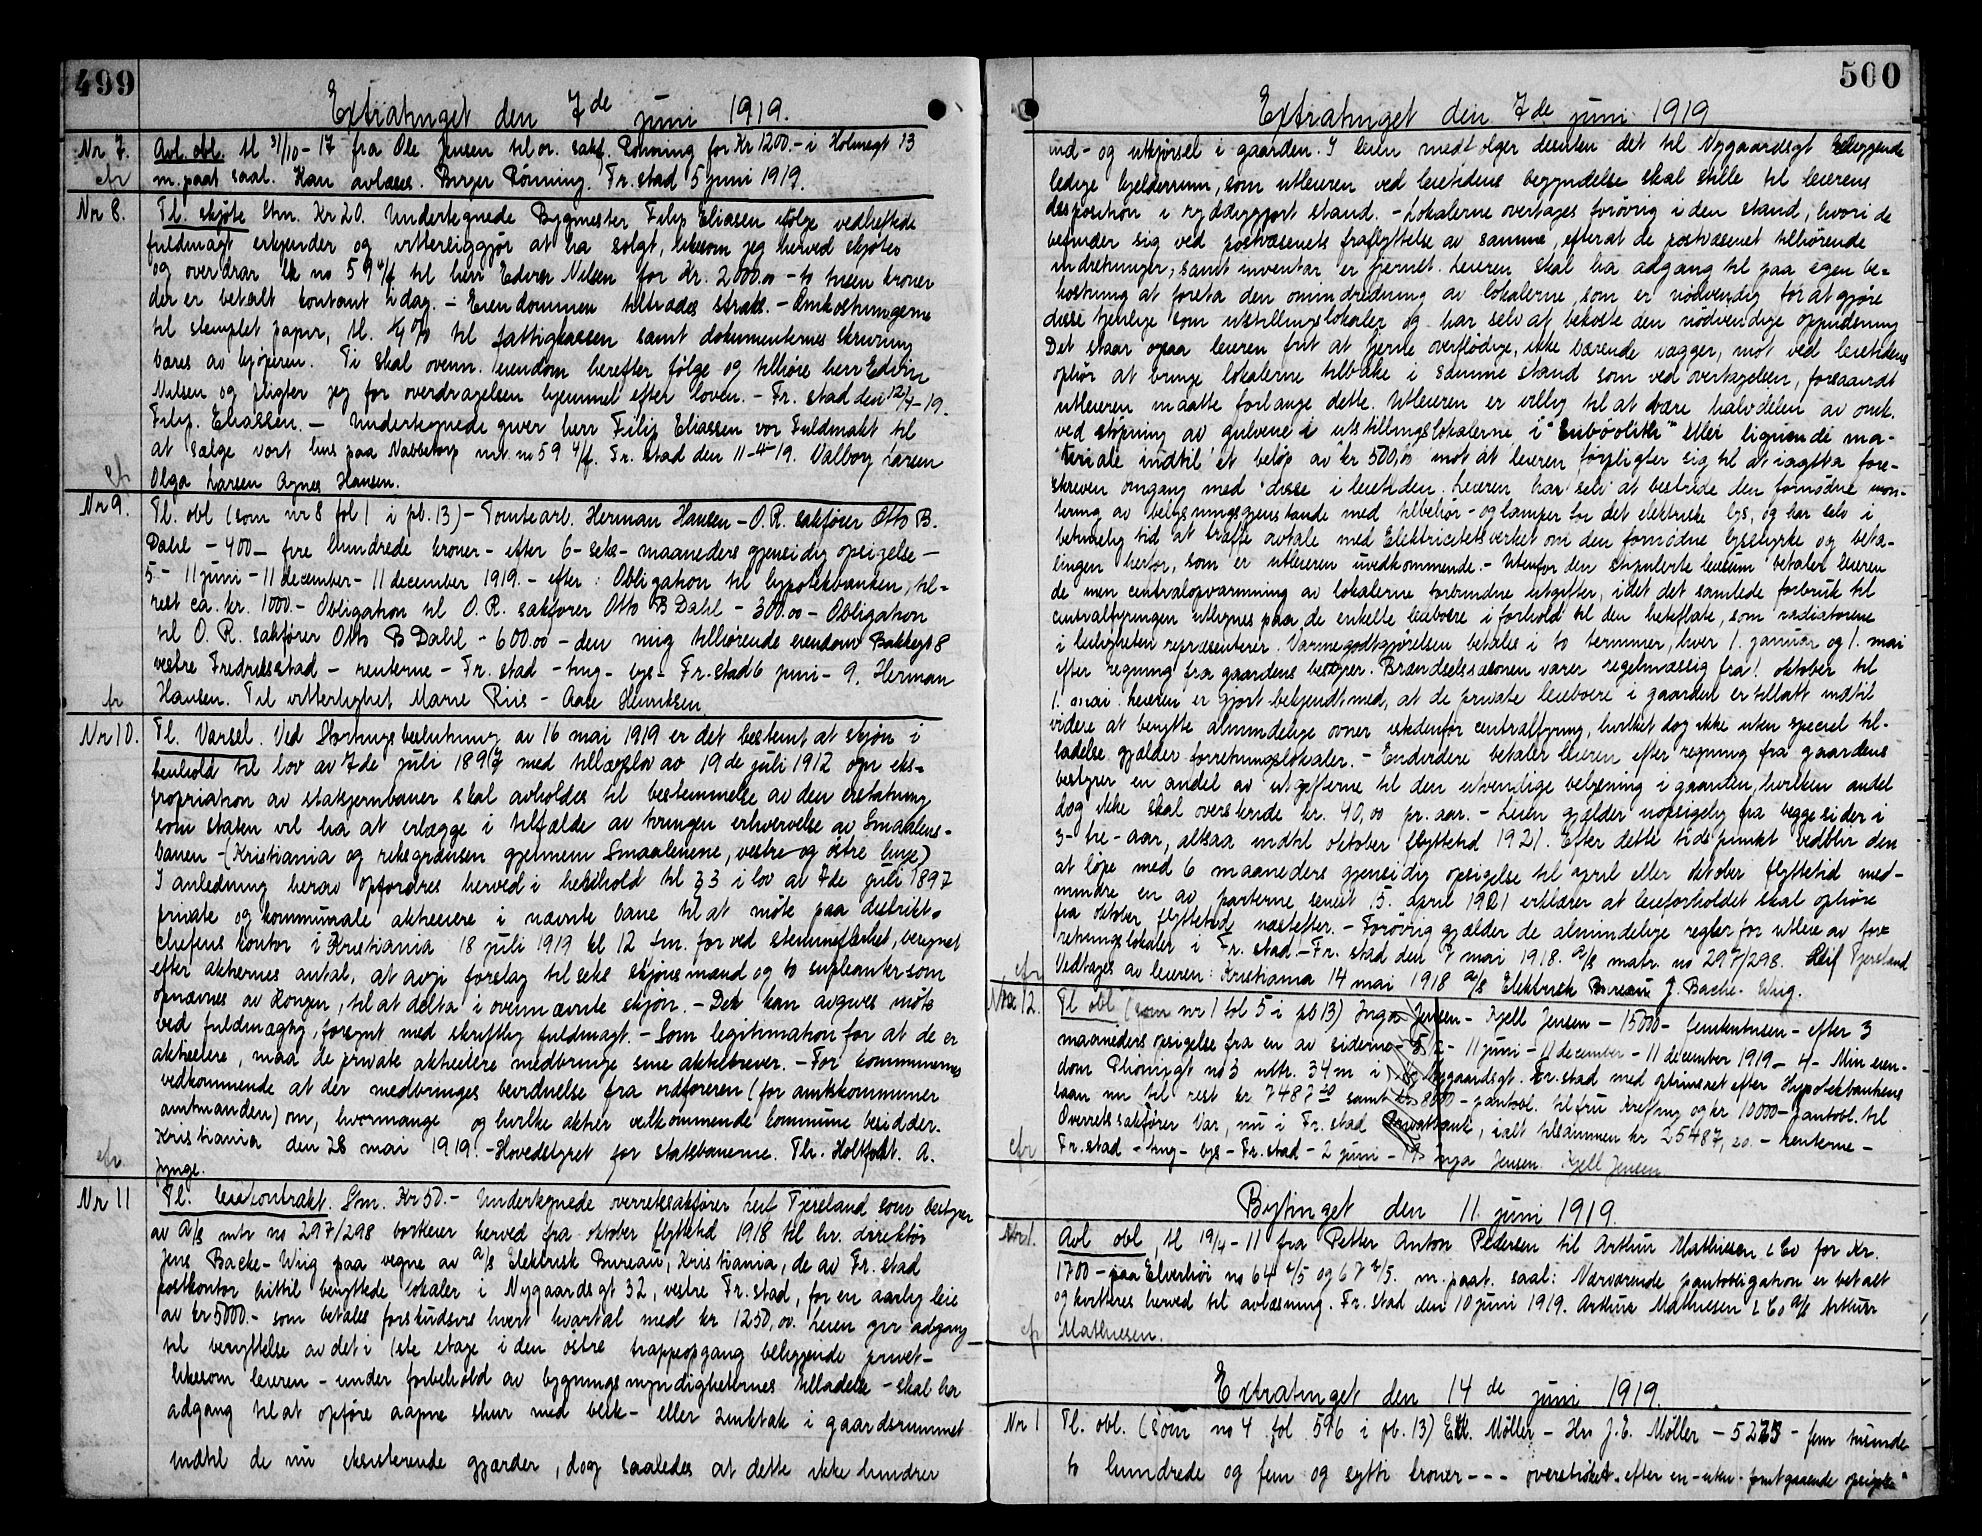 499
Extratinget den 7de juni 1919.
Nr 7. Avl. obl. tl 31/10-17 fra Ole Jensen til or. sakf. Rönning for Kr 1200.- i Holmegt 13
cfr m. paat saal. Kan avlæses. Birger Rönning. Fr.stad 5 juni 1919.
Nr 8. Tl. skjöte Stm. Kr 20. Undertegnede Bygmester Filip Eliasen ifölge vedheftede
fuldmagt erkjender og vitterliggjör at ha solgt, likesom jeg herved skjöter
og overdrar lk no 59 a/f til herr Edvin Nilsen for kr. 2000.00 - to tusen kroner
der er betalt kontant idag. - Eiendommen tiltrædes straks. - Omkostningerne
til stemplet papir, tl. 1/4 % til fattigkassen samt dokumenternes skrivning
bæres av kjöperen. Ti skal ovenn. eiendom herefter fölge og tilhöre herr Edvin
Nilsen og pligter jeg for overdragelsen hjemmel efter loven. - Fr. stad den 12/4-19.
Filip. Eliassen. - Undertegnede giver herr Filip Eliassen vor Fuldmakt til
at sælge vort hus paa Nabbetorp mt. no 59 a/f. Fr. stad den 11-4-19. Valborg Larsen
cfr Olga Larsen Agnes Hansen.
Nr 9. Tl. obl (som nr 8 fol 1 i pb. 13) - Tomtearb. Herman Hansen - O.R. sakförer Otto B.
Dahl - 400 - fire hundrede kroner - efter 6 - seks - maaneders gjensidig opsigelse -
5 - 11 juni - 11 december - 11 december 1919. - efter: Obligation til hypotekbanken, til-
rest ca. kr. 1000 - Obligation til O.R. sakförer Otto B Dahl - 300.00 - Obligation
til O.R. sakförer Otto B Dahl - 600.00 - den mig tilhörende eiendom Bakkegt 8
vestre Fredriksstad - renterne - Fr. stad - ting - bys - Fr.stad 6 juni - 9. Herman
fr Hansen. Til vitterlighet Marie Riis - Aase Henriksen
Nr 10. Tl. Varsel. Ved Stortingsbeslutning av 16 mai 1919 er det bestemt at skjön i
henhold til lov av 7de juli 1897 med tillægslov av 19 de juli 1912 om eks-
propriation av statsjernbaner skal avholdes til bestemmelse av den erstatning
som staten vil ha at erlægge i tilfælde av tvungen erhvervelse av Smaalens-
banen - (Kristiania og riksgrænsen gjennem Smaalenene, vestre og östre linje)
I anledning herav opfordres herved i henhold til § 3 i lov av 7de juli 1897
private og kommunale aktieeiere i nævnte bane til at möte paa distrikt-
chefens kontor i Kristiania 18 juli 1919 kl 12 fm. for ved stemmeflerhet, beregnet
efter aktiernes antal, at avgi forslag til seks skjönsmænd og to supleanter som
opnævnes av Kongen, til at delta i ovennævnte skjön. - Der kan avgives möte
ved fuldmægtig, forsynt med skriftlig fuldmagt. - Som legitimation for at de er
aktieeiere, maa de private aktieeiere medbringe sine aktiebrever. - For kommunernes
vedkommende at der medbringes bevidnelse fra ordföreren (for amtskommuner
amtmanden) om, hvormange og hvilke aktier vedkommende kommune besidder.
Kristiania den 28 mai 1919. - Hovedstyret for statsbanerne. Chr. Holtfodt. A.
cfr. Jynge.
Nr 11 Tl. leiekontrakt. Stm. Kr 50. - Undertegnede overretssakförer Leif Tjersland som bestyrer
av a/s mtr no 297/298 bortleier herved fra oktober flyttetid 1918 til hr. direktör
Jens Bache-Wiig paa vegne av a/s Elektrisk Bureau, Kristiania, de av Fr. stad
postkontor hittil benyttede lokaler i Nygaardsgt 32, vestre Fr.stad, for en aarlig leie
av kr 5000.- som betales forskudsvis hvert kvartal med kr 1250,00. Leien gir adgang
til benyttelse av det i 1ste etage i den östre trappeopgang beliggende privet -
likesom leieren - under forbehold av bygningsmyndigheternes tilladelse - skal ha
adgang til at opföre aapne skur med blik- eller zinktak i gaardsrummet
indtil de nu eksisterende gjærder, dog saaledes at dette ikke hindrer
500
Extratinget den 7de juni 1919
ind- og utkjörsel i gaarden. I leien medfölger desuten det til Nygaardsgt beliggende
ledige kjelderrum, som utleieren ved leietidens begyndelse skal stille til leierens
desposition i ryddiggjort stand. - Lokalerne overtages forövrig i den stand, hvori de
befinder sig ved postvæsenets fraflyttelse av samme, efterat de postvæsenet tilhörende
indretninger, samt inventar er fjernet. Leieren skal ha adgang til paa egen be-
kostning at foreta den omindredning av lokalerne, som er nödvendig for at gjöre
disse tjenlige som utstillingslokaler og har selv at bekoste den nödvendige oppudsning
Det staar ogsaa leieren frit at fjerne overflödige, ikke bærende vægger, mot ved leietidens
ophör at bringe lokalerne tilbake i samme stand som ved overtagelsen, forsaavidt
utleieren maatte forlange dette. Utleieren er villig til at bære halvdelen av omk.
ved stöpning av gulvene i utstillingslokalerne i "Euböolith" eller lignende ma-
teriale indtil et belöp av kr 500,00 mot at leieren forpligter sig til at iagtta fore-
skreven omgang med disse i leietiden. Leieren har selv at bestride den fornödne mon-
tering av belysningsgjenstande med tilbehör - og lamper for det elektriske lys, og har selv i
betimelig tid at træffe avtale med Elektricitetsverket om den fornödne lysstyrke og beta-
lingen herfor, som er utleieren uvedkommende. - Utenfor den stipulerte leiesum betaler leieren
de med centralopvarmning av lokalerne forbundne utgifter, idet det samlede forbruk til
centralfyringen utlignes paa de enkelte leieboere i forhold til den heteflate, som radiatorene
i leiligheten repræsenterer. Varmegodtgjörelsen betales i to terminer, hver 1. januar og 1. mai
efter regning fra gaardens bestyrer. Brændselssæsonen varer regelmæssig fra 1. oktober til
1. mai. Leieren er gjort bekjendt med, at de private leieboere i gaarden er tillatt indtil
videre at benytte almindelige ovner istedenfor centralfyring, hvilket dog ikke uten speciel til-
ladelse gjælder forretningslokaler. - Endvidere betaler leieren efter regning fra gaardens
bestyrer en andel av utgifterne til den utvendige belysning i gaarden, hvilken andel
dog ikke skal overstige kr. 40,00 pr. aar. - Leien gjælder uopsigelig fra begge sider i
3 - tre - aar, altsaa indtil oktober flyttetid 1921. Efter dette tidspunkt vedblir den
at löpe med 6 maaneders gjensidig opsigelse til april eller oktober flyttetid med-
mindre en av parterne senest 15. april 1921 erklærer at leieforholdet skal ophöre
fra oktober flyttetid næstefter. - Forövrig gjælder de almindelige regler for utleie av for-
retningslokaler i Fr. stad. - Fr. stad den 7 mai 1918. a/s matr. no 297/298. Leif Tjersland
cfr Vedtages av leieren: Kristiania 14 mai 1918 a/s Elektrisk Bureau J. Bache-Wiig.
Nr 12. Tl obl (som nr 1 fol 5 i pb 13) Inga Jensen - Kjell Jensen - 15000 - femtentusen - efter 3
maaneders opsigelse fra en av siderne - 5 1/2 - 11 juni - 11 december - 11 december 1919 - 4 - Min eien-
dom no 3 mtr. 34 m i Nygaardsgt. Fr. stad med optrinsret efter Hypotekbankens
laan nu til rest kr 7487,20 samt kr 8000 - pantobl. til fru Krefting og kr 10000 - pantobl. til
Overretssakförer Var, nu i Fr. stad Privatbank, ialt tilsammen kr 25487,20. - renterne -
cfr Fr.stad - ting - bys - Fr.stad - 2 juni - 19 Inga Jensen Kjell Jensen
Bytinget den 11. juni 1919.
Nr 1. Avl obl, tl 19/4-11 fra Petter Anton Pedersen til Arthur Mathiesen & Co for Kr.
1700 - paa Elverhöi no 64 a/5 og 67 a/5. m. paat. saal: Nærværende pantobligation er betalt
og kvitteres herved til avlæsning. Fr. stad den 10 juni 1919. Arthur Mathiesen & Co a/s Arthur
cfr Mathiesen.
Extratinget den 14 de juni 1919.
Nr 1 Tl. obl. (som no 4 fol 596 i pb. 13) Møller - Hrs J.E. Møller - 5275 - fem tusinde
to hundrede og fem og sytti kroner - - - overströket. efter en - uten - forutgaaende opsigelse